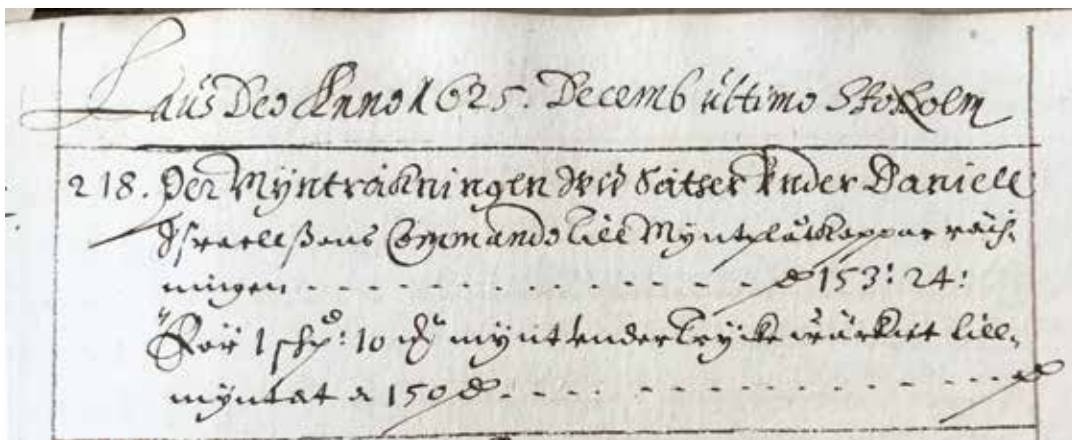 Laus Deo Anno 1625. Decemb ultimo Stokolm
218. Per Mÿnträkningen wid Säter Under Daniell
Israellßons Commando till Mÿntplåtkoppar räch-
ningen - - - - - - - - - - - - - - 153: 24:
För 1 10 mÿnt under Tryckewärkiet till-
mÿntat a 150 - - - - - - - - - - - - - -